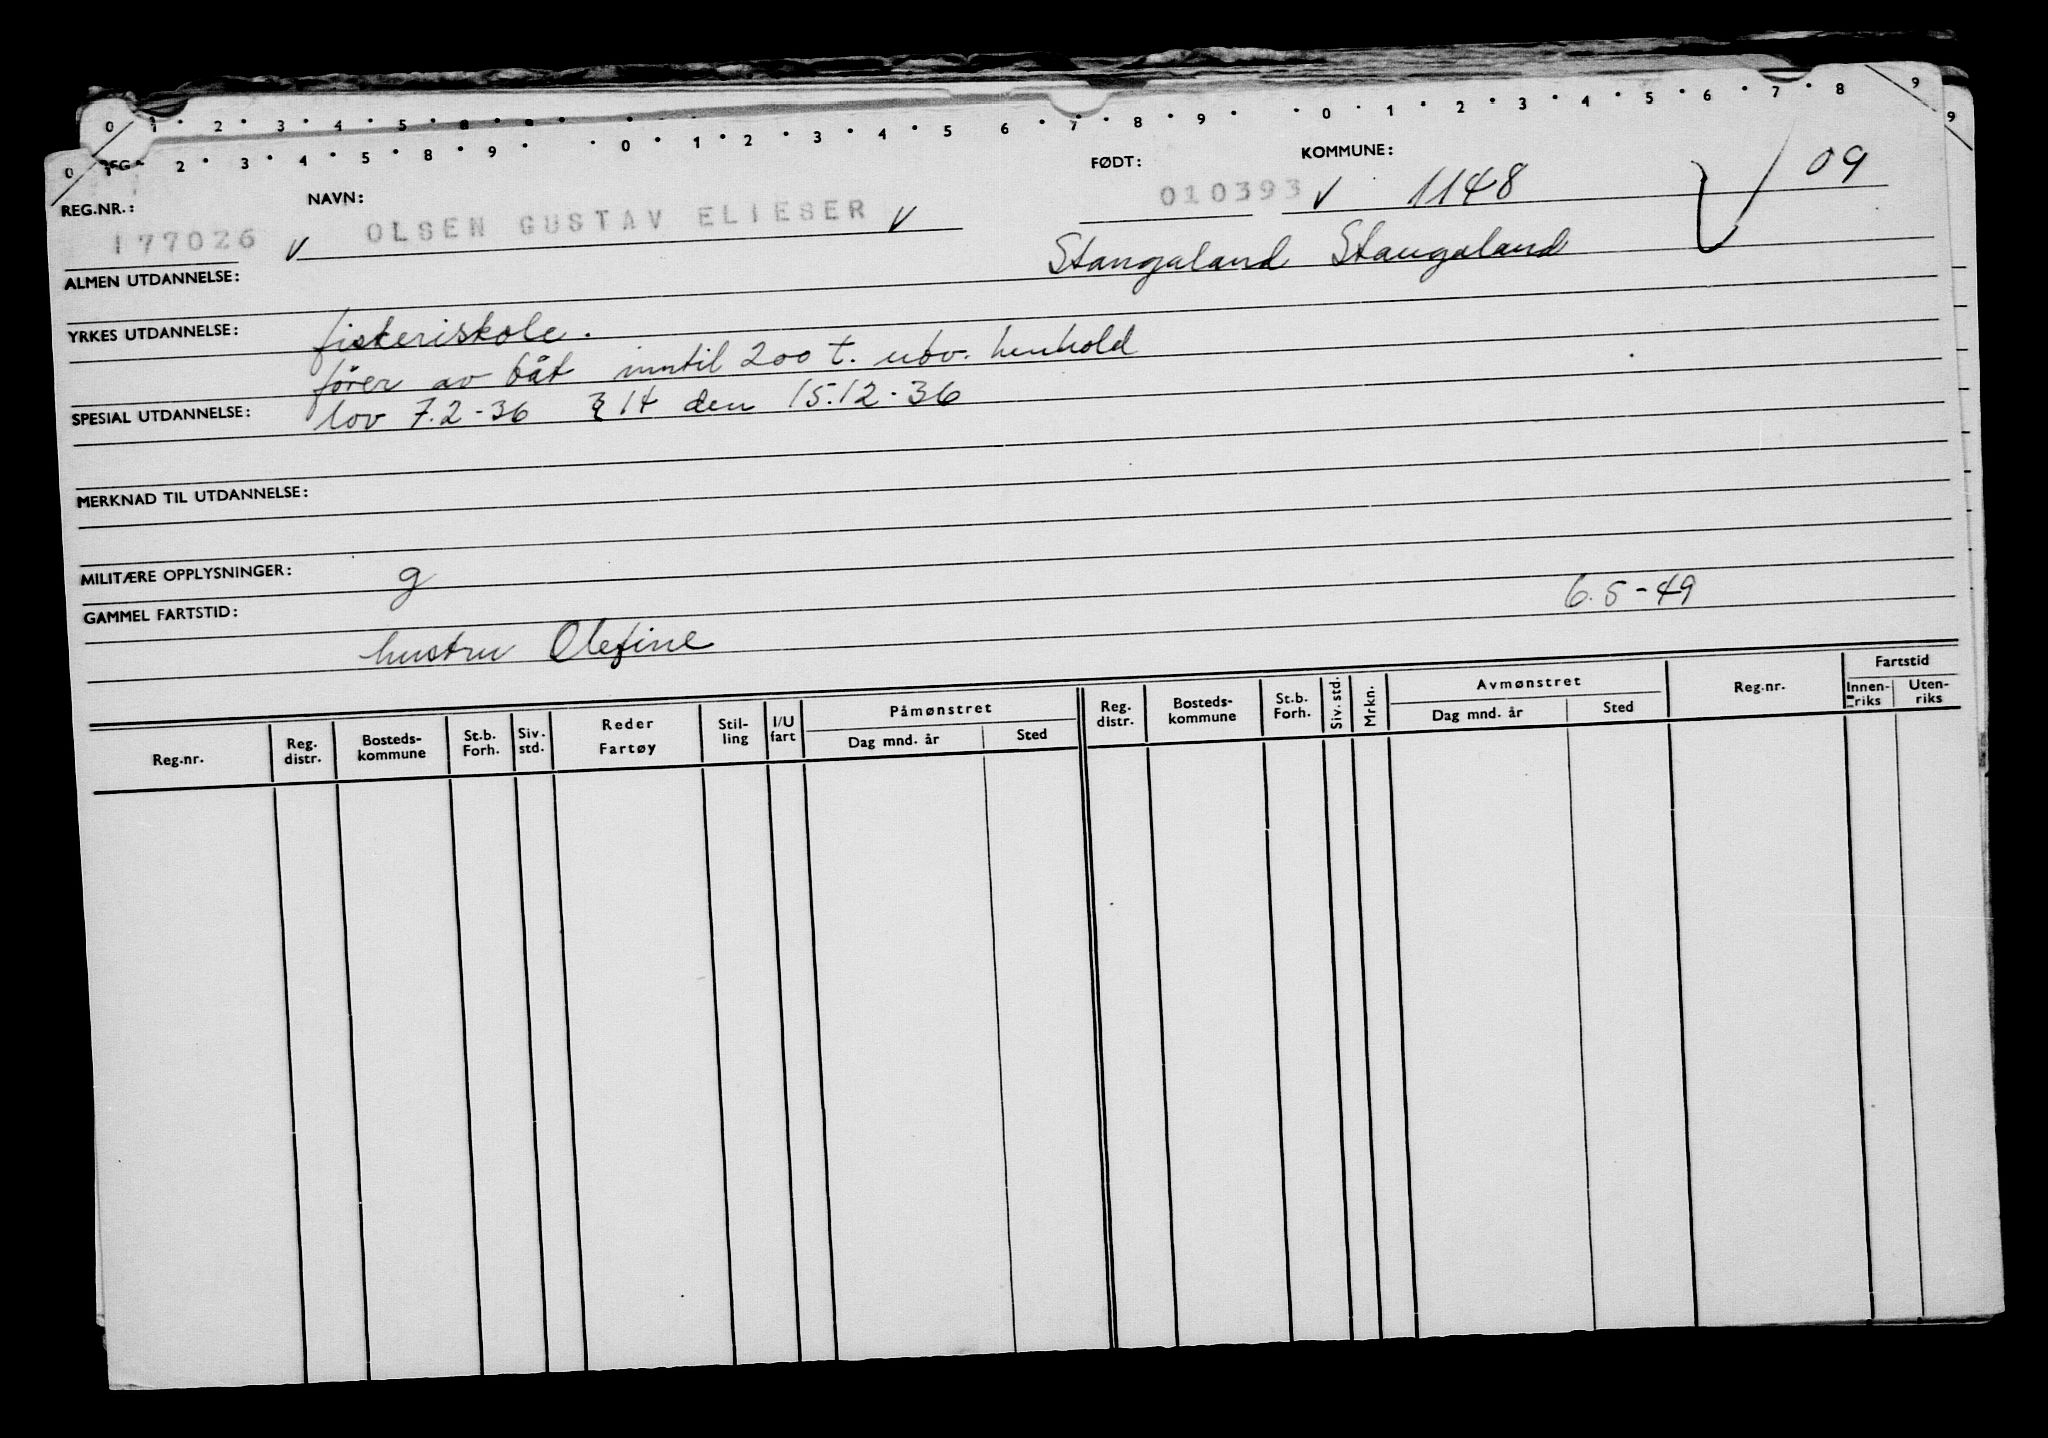 0 1 2 3 4 5 8 9 0 1 2 3 4 5 6 7 8 9 0 1 2 3 4 5 6 7 8 9
0 1 2 3 4 5 8 9 9
REG.NR.: NAVN: FØDT: KOMMUNE:
177026 v OLSEN GUSTAV ELIESER v 010393 v 1148 09
Stangaland Stangaland
ALMEN UTDANNELSE:
YRKES UTDANNELSE: fiskeriskole.
fører av båt inntil 200 t. utv. henhold
SPESIAL UTDANNELSE: lov 7.2-36 § 14 den 15.12-36
MERKNAD TIL UTDANNELSE:
MILITÆRE OPPLYSNINGER: g
GAMMEL FARTSTID: 6.5-49
hustru Olefine
Reg.nr. Reg. distr. Bosteds-kommune St.b. Forh. Siv. std. Reder Fartøy Stil-ling I/U fart Påmønstret Dag mnd. år Sted Reg. distr. Bosteds-kommune St.b. Forh. Siv. std. Mrkn. Avmønstret Dag mnd. år Sted Reg.nr. Fartstid Innen-riks Uten-riks